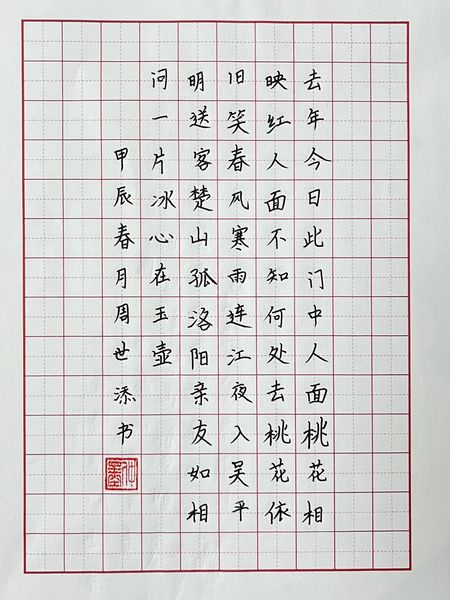 去年今日此门中人面桃花相
映红人面不知何处去桃花依
旧笑春风寒雨连江夜入吴平
明送客楚山孤洛阳亲友如相
问一片冰心在玉壶
甲辰春月周世添书